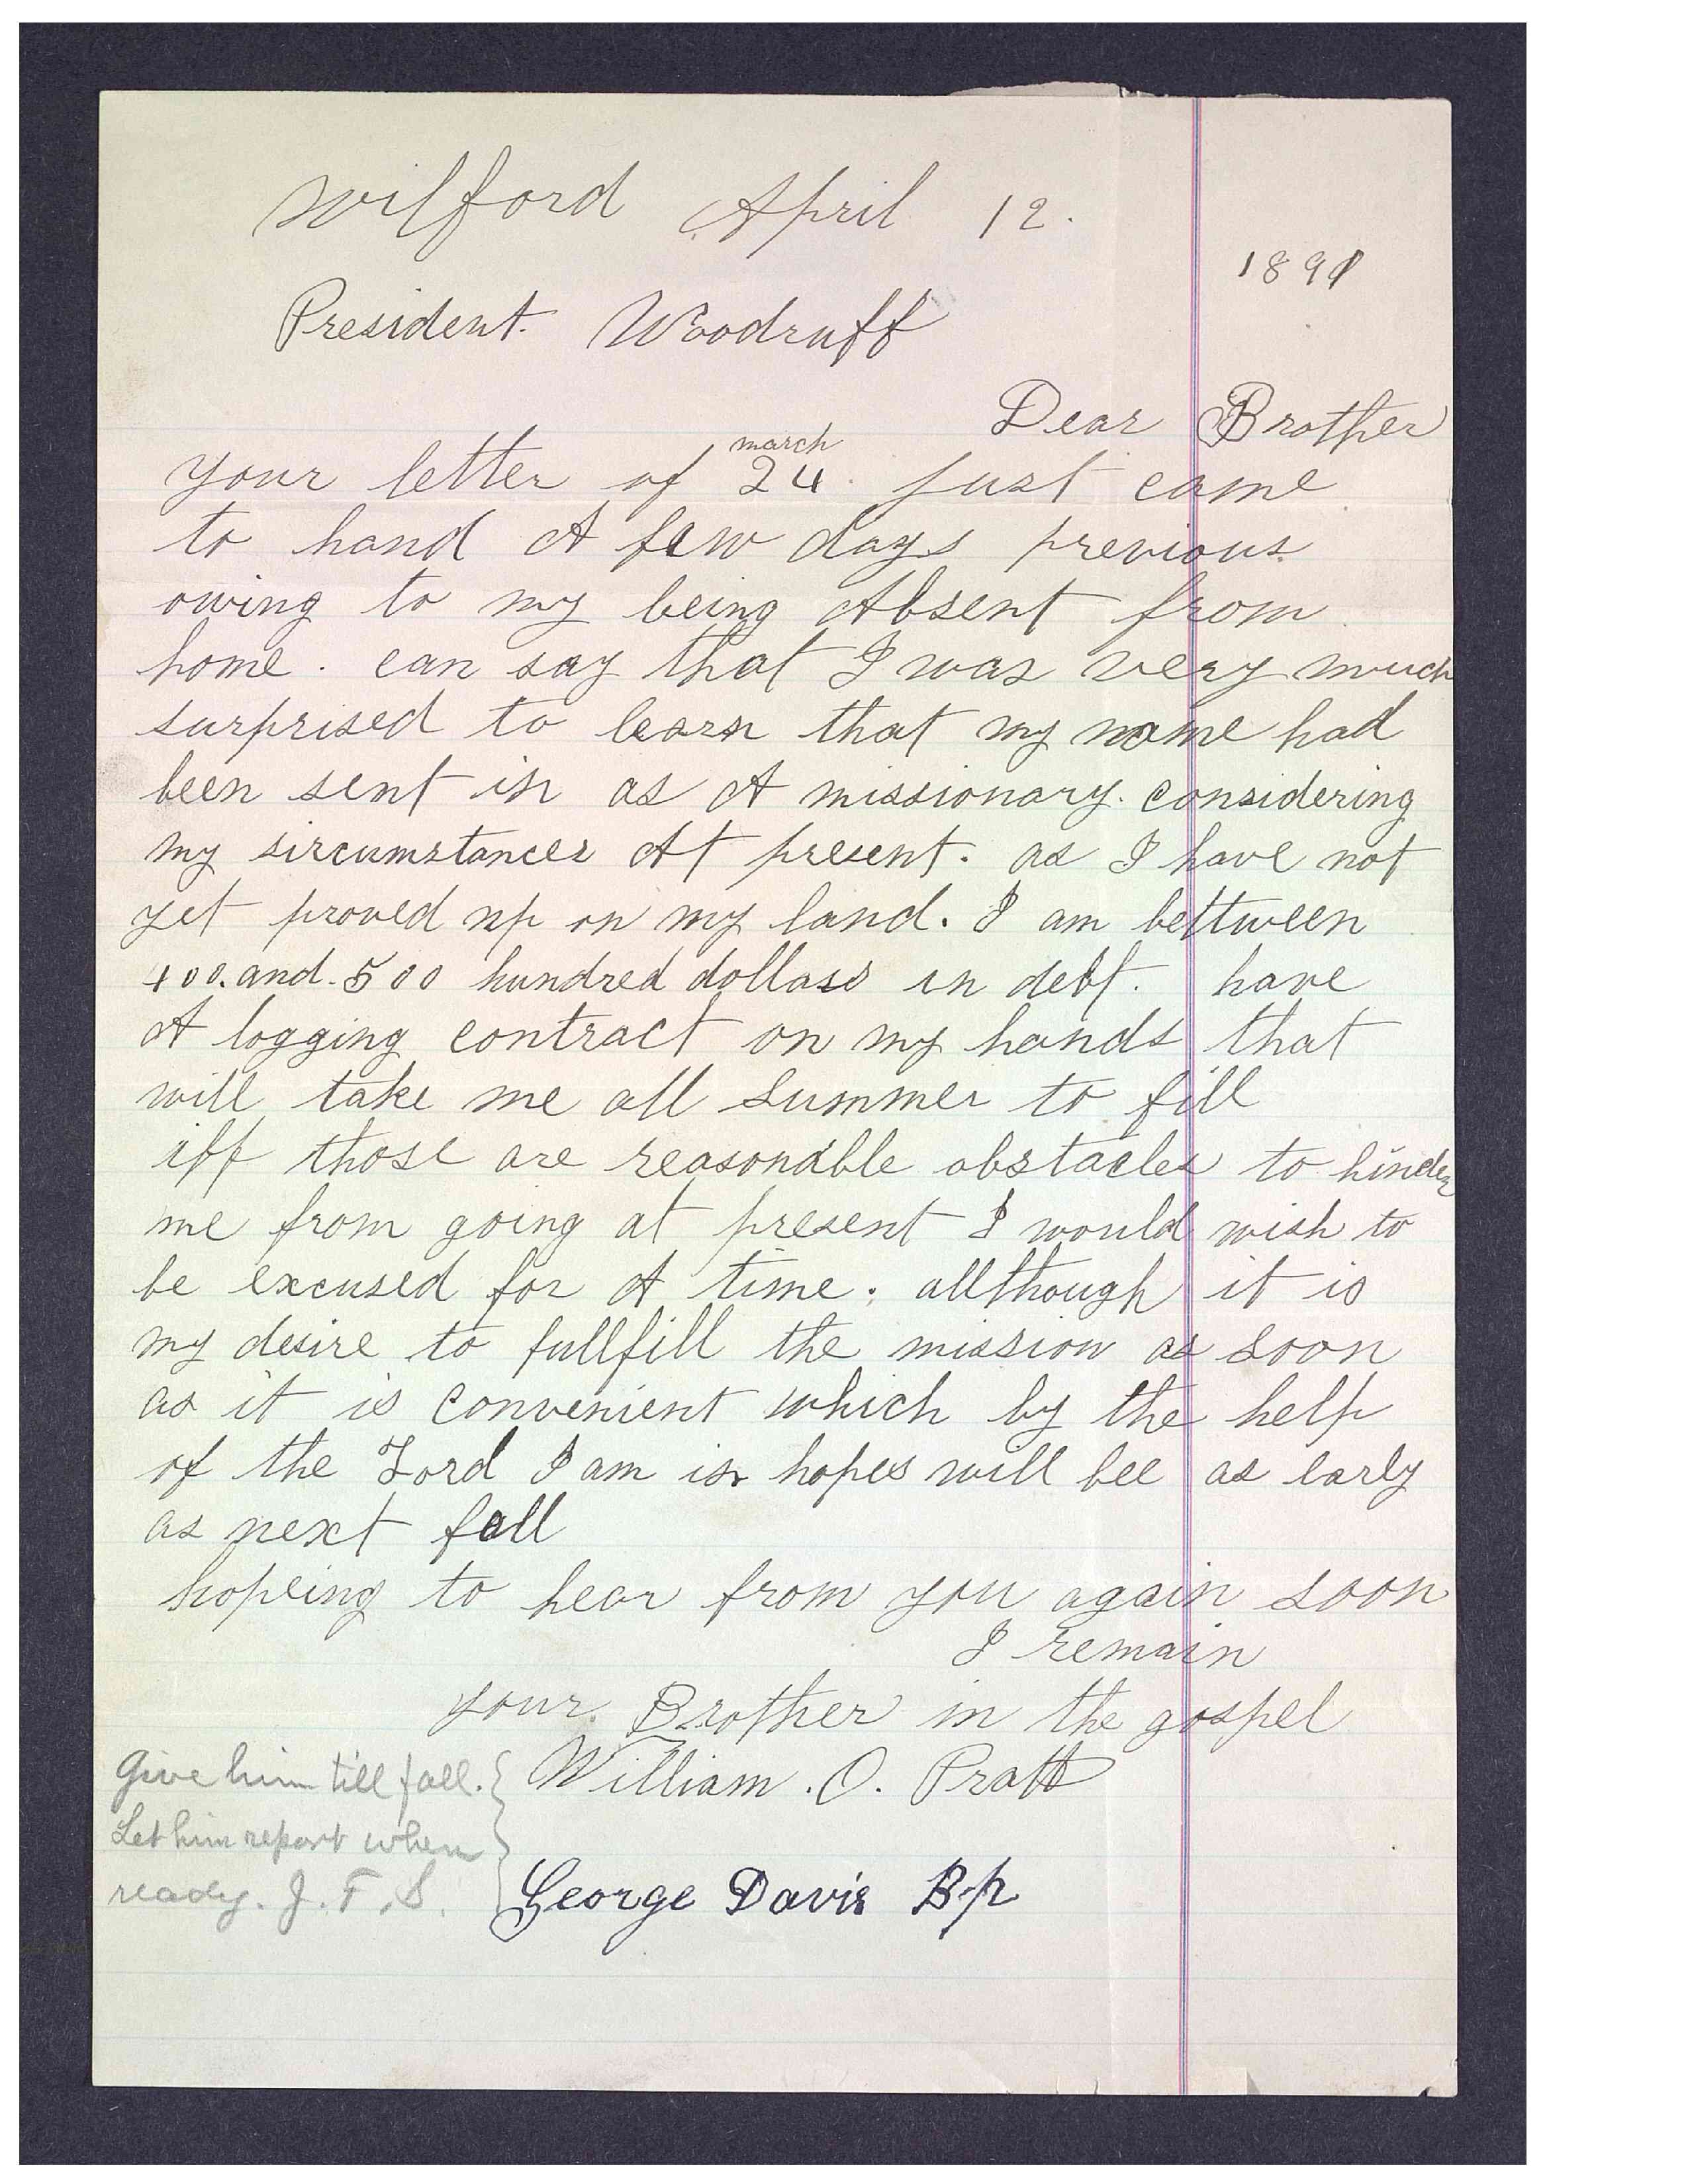 Wilford April 12.
1891
President. Woodruff
Dear Brother
march
your letter of 24. just came
to hand A few days previous
owing to my being Absent from
home. can say that I was very much
surprised to learn that my name had
been sent in as A missionary. considering
my sircumstances At present. as I have not
yet proved up on my land. I am bettween
400. and. 500 hundred dollars in debt. have
A logging contract on my hands that
will take me all summer to fill
iff those are reasonable obstacles to hinder
me from going at present I would wish to
be excused for A time. allthough it is
my desire to fullfill the mission as soon
as it is convenient which by the help
of the Lord I am in hopes will bee as early
as next fall
hopeing to hear from you again soon
I remain
your Brother in the gospel
William. O. Pratt
Give him till fall.
Let him report when
ready. J. F. S.
George Davis Bp